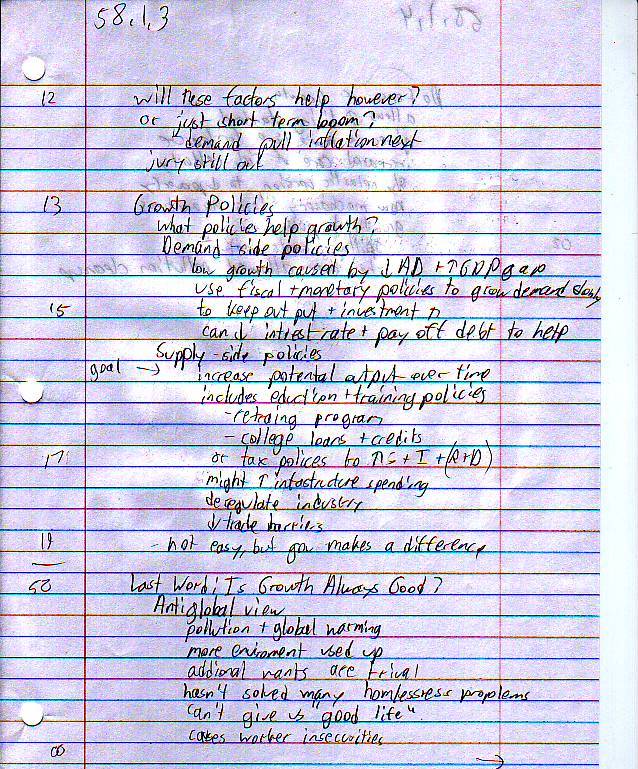 58.1.3
12 will these factors help however?
or just short term boom?
demand pull inflation next
jury still out
13 Growth Policies
What policies help growth?
Demand-side policies
low growth caused by ↓AD + ↑GDP gap
use fiscal + monetary policies to grow demand slowly
15 to keep out put + investment ↑
can ↓ intrest rate + pay off debt to help
Supply-side policies
goal → increase potential output over time
includes eduction + training policies
-retraing program
- college loans + credits
17 or tax polices to ↑S + I + (R+D)
might ↑ infastructure spending
deregulate industry
↓ trade barriers
19 - not easy, but gov makes a difference
50 Last Word: Is Growth Always Good?
Antiglobal view
pollution + global warming
more enviroment used up
addional wants are trival
hasn't solved many homlessness propolems
can't give us "good life"
causes worker insecurities
00 →